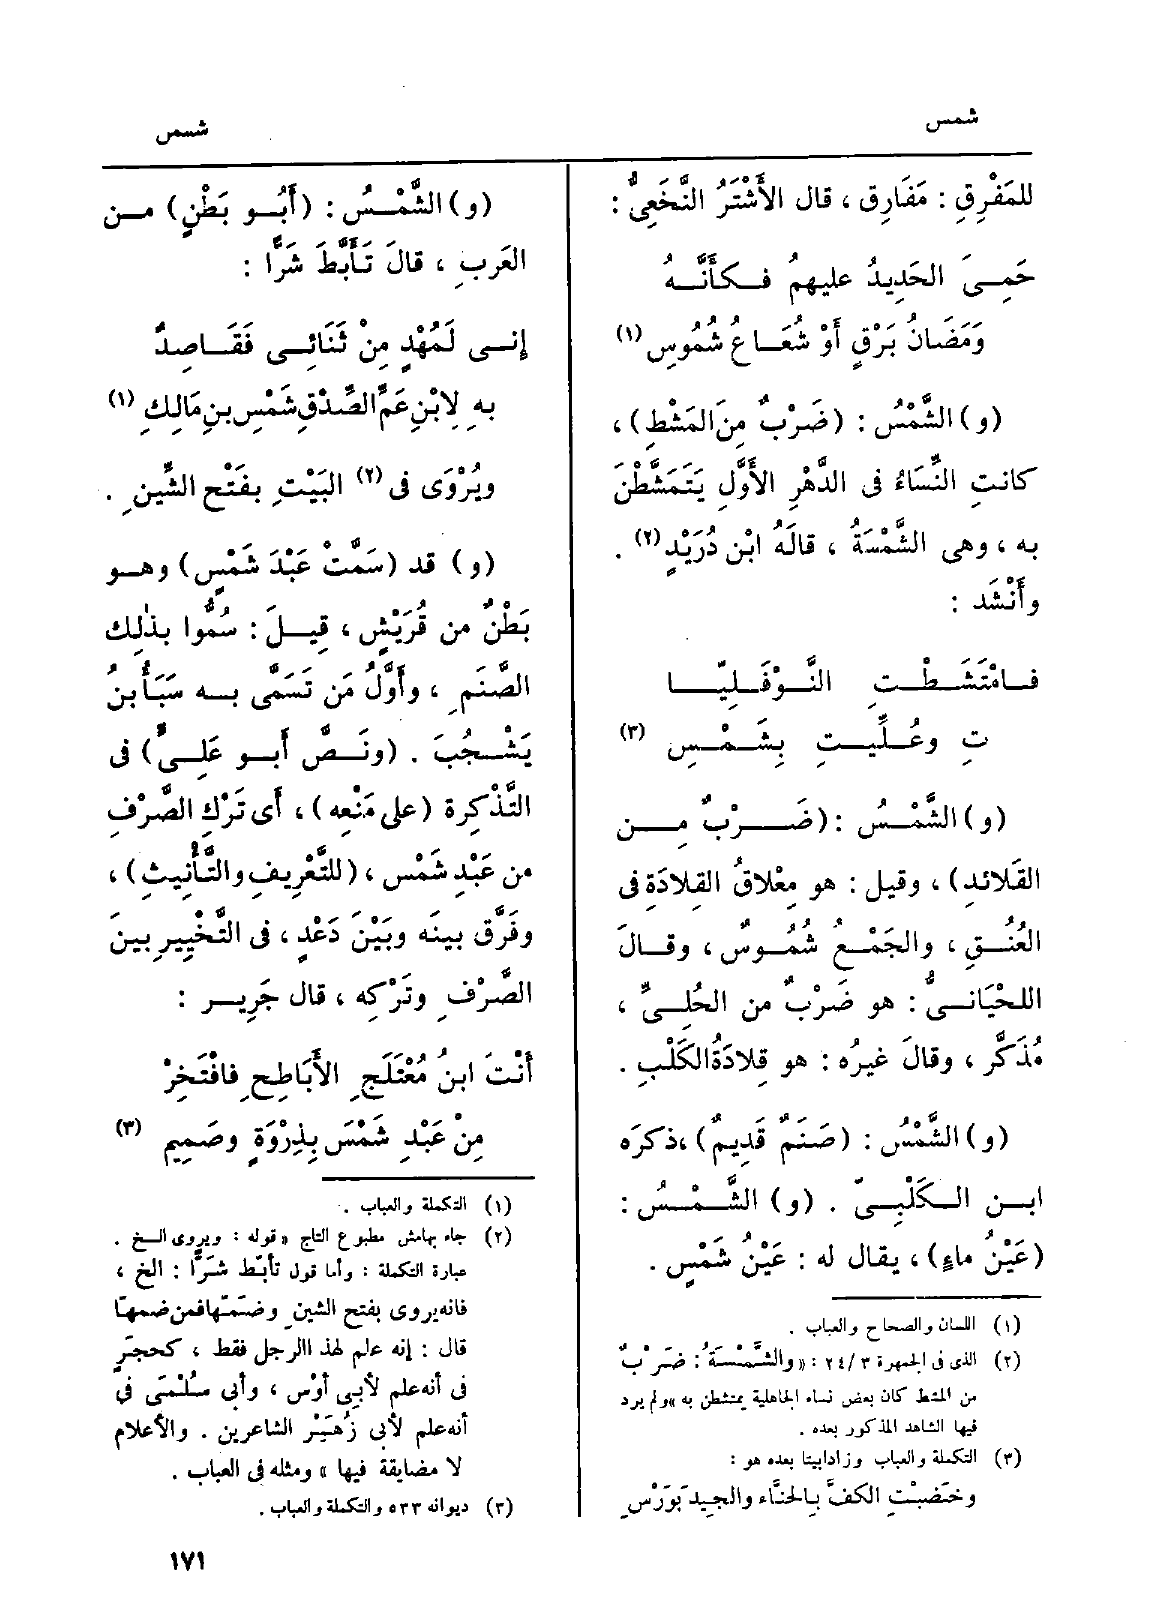 شمس
شمس
للمَفْرِقِ : مَفَارِق ، قال الأَشْتَرُ النَّخَعِىُّ :
حَمِىَ الحَدِيدُ عليهمُ فـكأَنَّـهُ
وَمَضَانُ بَرْقٍ أَوْ شُعَـاعُ شُمُوسِ (١)
(و) الشَّمْسُ : (ضَرْبٌ مِنَ المَشْطِ) ،
كانتِ النِّسَاءُ فى الدَّهْرِ الأَوَّلِ يَتَمَشَّطْنَ
به ، وهى الشَّمْسَةُ ، قالَهُ ابْن دُرَيْدٍ (٢) .
وأَنْشَد :
فـامْتَشَـطْـتِ النَّـوْفَـلِيَّـا
تِ وعُـلِّيـتِ بِشَـمْـسِ (٣)
(و) الشَّمْـسُ : (ضَـرْبٌ مِـن
القَلائدِ) ، وقيل : هو مِعْلاقُ القِلادَةِ فى
العُنُـقِ ، والجَمْـعُ شُمُـوسٌ ، وقـالَ
اللحْيَانـىُّ : هو ضَرْبٌ من الحُلِـىِّ ،
مُذَكَّر ، وقالَ غيرُه : هو قِلادَةُ الكَلْبِ .
(و) الشَّمْسُ : (صَنَمٌ قَدِيمٌ) ، ذكرَه
ابـن الـكَلْبِـىّ . (و) الشَّـمْـسُ :
(عَيْنُ ماءٍ) ، يقال له : عَيْنُ شَمْسٍ .
(١) اللسان والصحاح والعباب .
(٢) الذى فى الجمهرة ٣/ ٢٤ : « والشَّمْسَةُ : ضَرْبٌ
من المشط كان بعض نساء الجاهلية يمتشطن به » ولم يرد
فيها الشاهد المذكور بعده .
(٣) التكملة والعباب وزادا بيتا بعده هو :
وخَضَبْتِ الكفَّ بالحنَّاء والجيدَ بوَرْسِ
(و) الشَّمْـسُ : (أَبُـو بَطْنٍ) مـن
العَربِ ، قالَ تَأَبَّطَ شَرًّا :
إنـى لَمُهْدٍ مِنْ ثَنَائِـى فَقَـاصِدٌ
بهِ لِابْنِ عَمِّ الصِّدْقِ شَمْسِ بنِ مَالِكِ (١)
ويُرْوَى فى (٢) البَيْتِ بفَتْحِ الشِّينِ .
(و) قد (سَمَّتْ عَبْدَ شَمْسٍ) وهـو
بَطْنٌ من قُرَيْشٍ ، قِيـلَ : سُمُّوا بذٰلِك
الصَّنَمِ ، وأَوَّلُ مَن تَسَمَّى بـه سَبَأُ بنُ
يَشْـجُبَ . (ونَـصَّ أَبـو عَلِـىٍّ) فى
التَّذْكِرة (على مَنْعِه) ، أَى تَرْكِ الصَّرْفِ
من عَبْدِ شَمْس ، (للتَّعْرِيفِ والتَّأْنِيثِ) ،
وفَرَّق بينَه وبَيْنَ دَعْدٍ ، فى التَّخْيِيرِ بينَ
الصَّرْفِ وتَرْكِه ، قال جَرِيـر :
أَنْتَ ابنُ مُعْتَلَجِ الأَبَاطِحِ فافْتَخِرْ
مِنْ عَبْدِ شَمْسَ بِذِرْوَةٍ وصَمِيمِ (٣)
(١) التكملة والعباب .
(٢) جاء بهامش مطبوع التاج « قوله : ويروى الخ .
عبارة التكملة : وأما قول تأبّط شَرًّا : الخ ،
فانه يروى بفتح الشين وضَمّها فمن ضمها
قال : إنه علم لهذا الرجل فقط ، كحجرٍ
فى أنه علم لأبى أوْس ، وأبى سُلْمَى فى
أنه علم لأبى زُهَيْر الشاعرين . والأعلام
لا مضايقة فيها » ومثله فى العباب .
(٣) ديوانه ٥٣٣ والتكملة والعباب .
١٧١